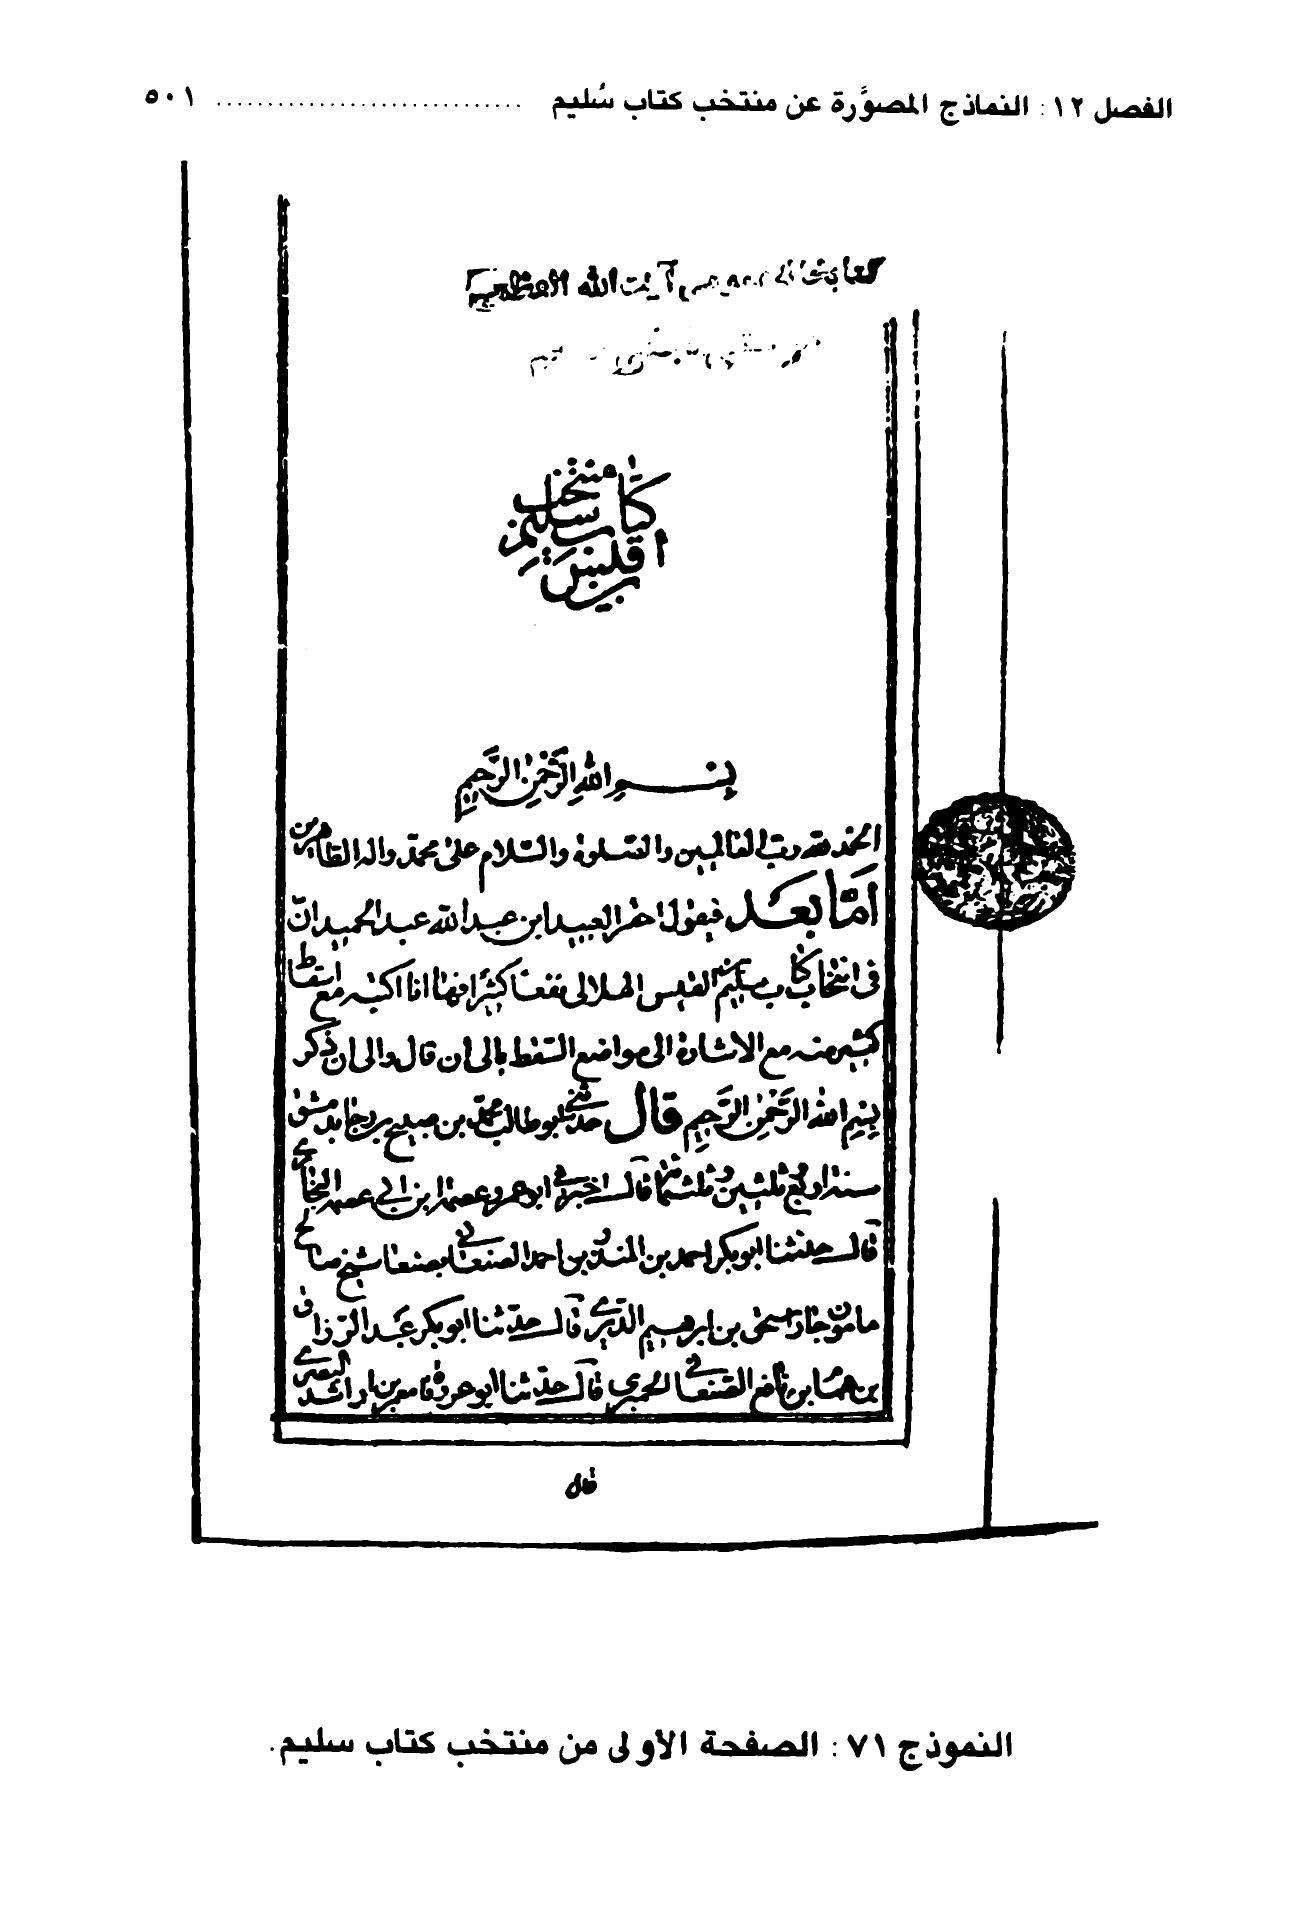 الفصل ١٢: النماذج المصوَّرة عن منتخب كتاب سُليم ............................ ٥٠١
آيت الله العظمى
منتخب
كتاب سليم
بن قيس
بسم الله الرحمن الرحيم
الحمد لله رب العالمين والصلوة والسلام على محمد واله الطاهرين
اَمّا بَعد فيقول احقر العبيد ابن عبد الله عبد الحميد ان
فى انتخاب كتاب سليم القيس الهلالى نفعا كثيرا فها انا اكتبه مع اسقاط
كثير منه مع الاشارة الى مواضع السقط بالى ان قال والى ان ذكر
بسم الله الرحمن الرحيم قال حدثنى ابو طالب محمد بن صبيح بن رجا بدمشق
سنة اربع وثلثين وثلثمائة قال اخبرنى ابو عمرو عصمة ابن ابى عصمة البخارى
قال حدثنا ابو بكر احمد بن المنذر بن احمد الصنعانى بصنعا شيخ صالح
مامون جار اسحق بن ابرهيم الدبرى قال حدثنا ابو بكر عبد الرزاق
بن همام بن نافع الصنعانى الحميرى قال حدثنا ابو عروة معمر بن راشد البصرى
قال
النموذج ٧١: الصفحة الأولى من منتخب كتاب سليم.